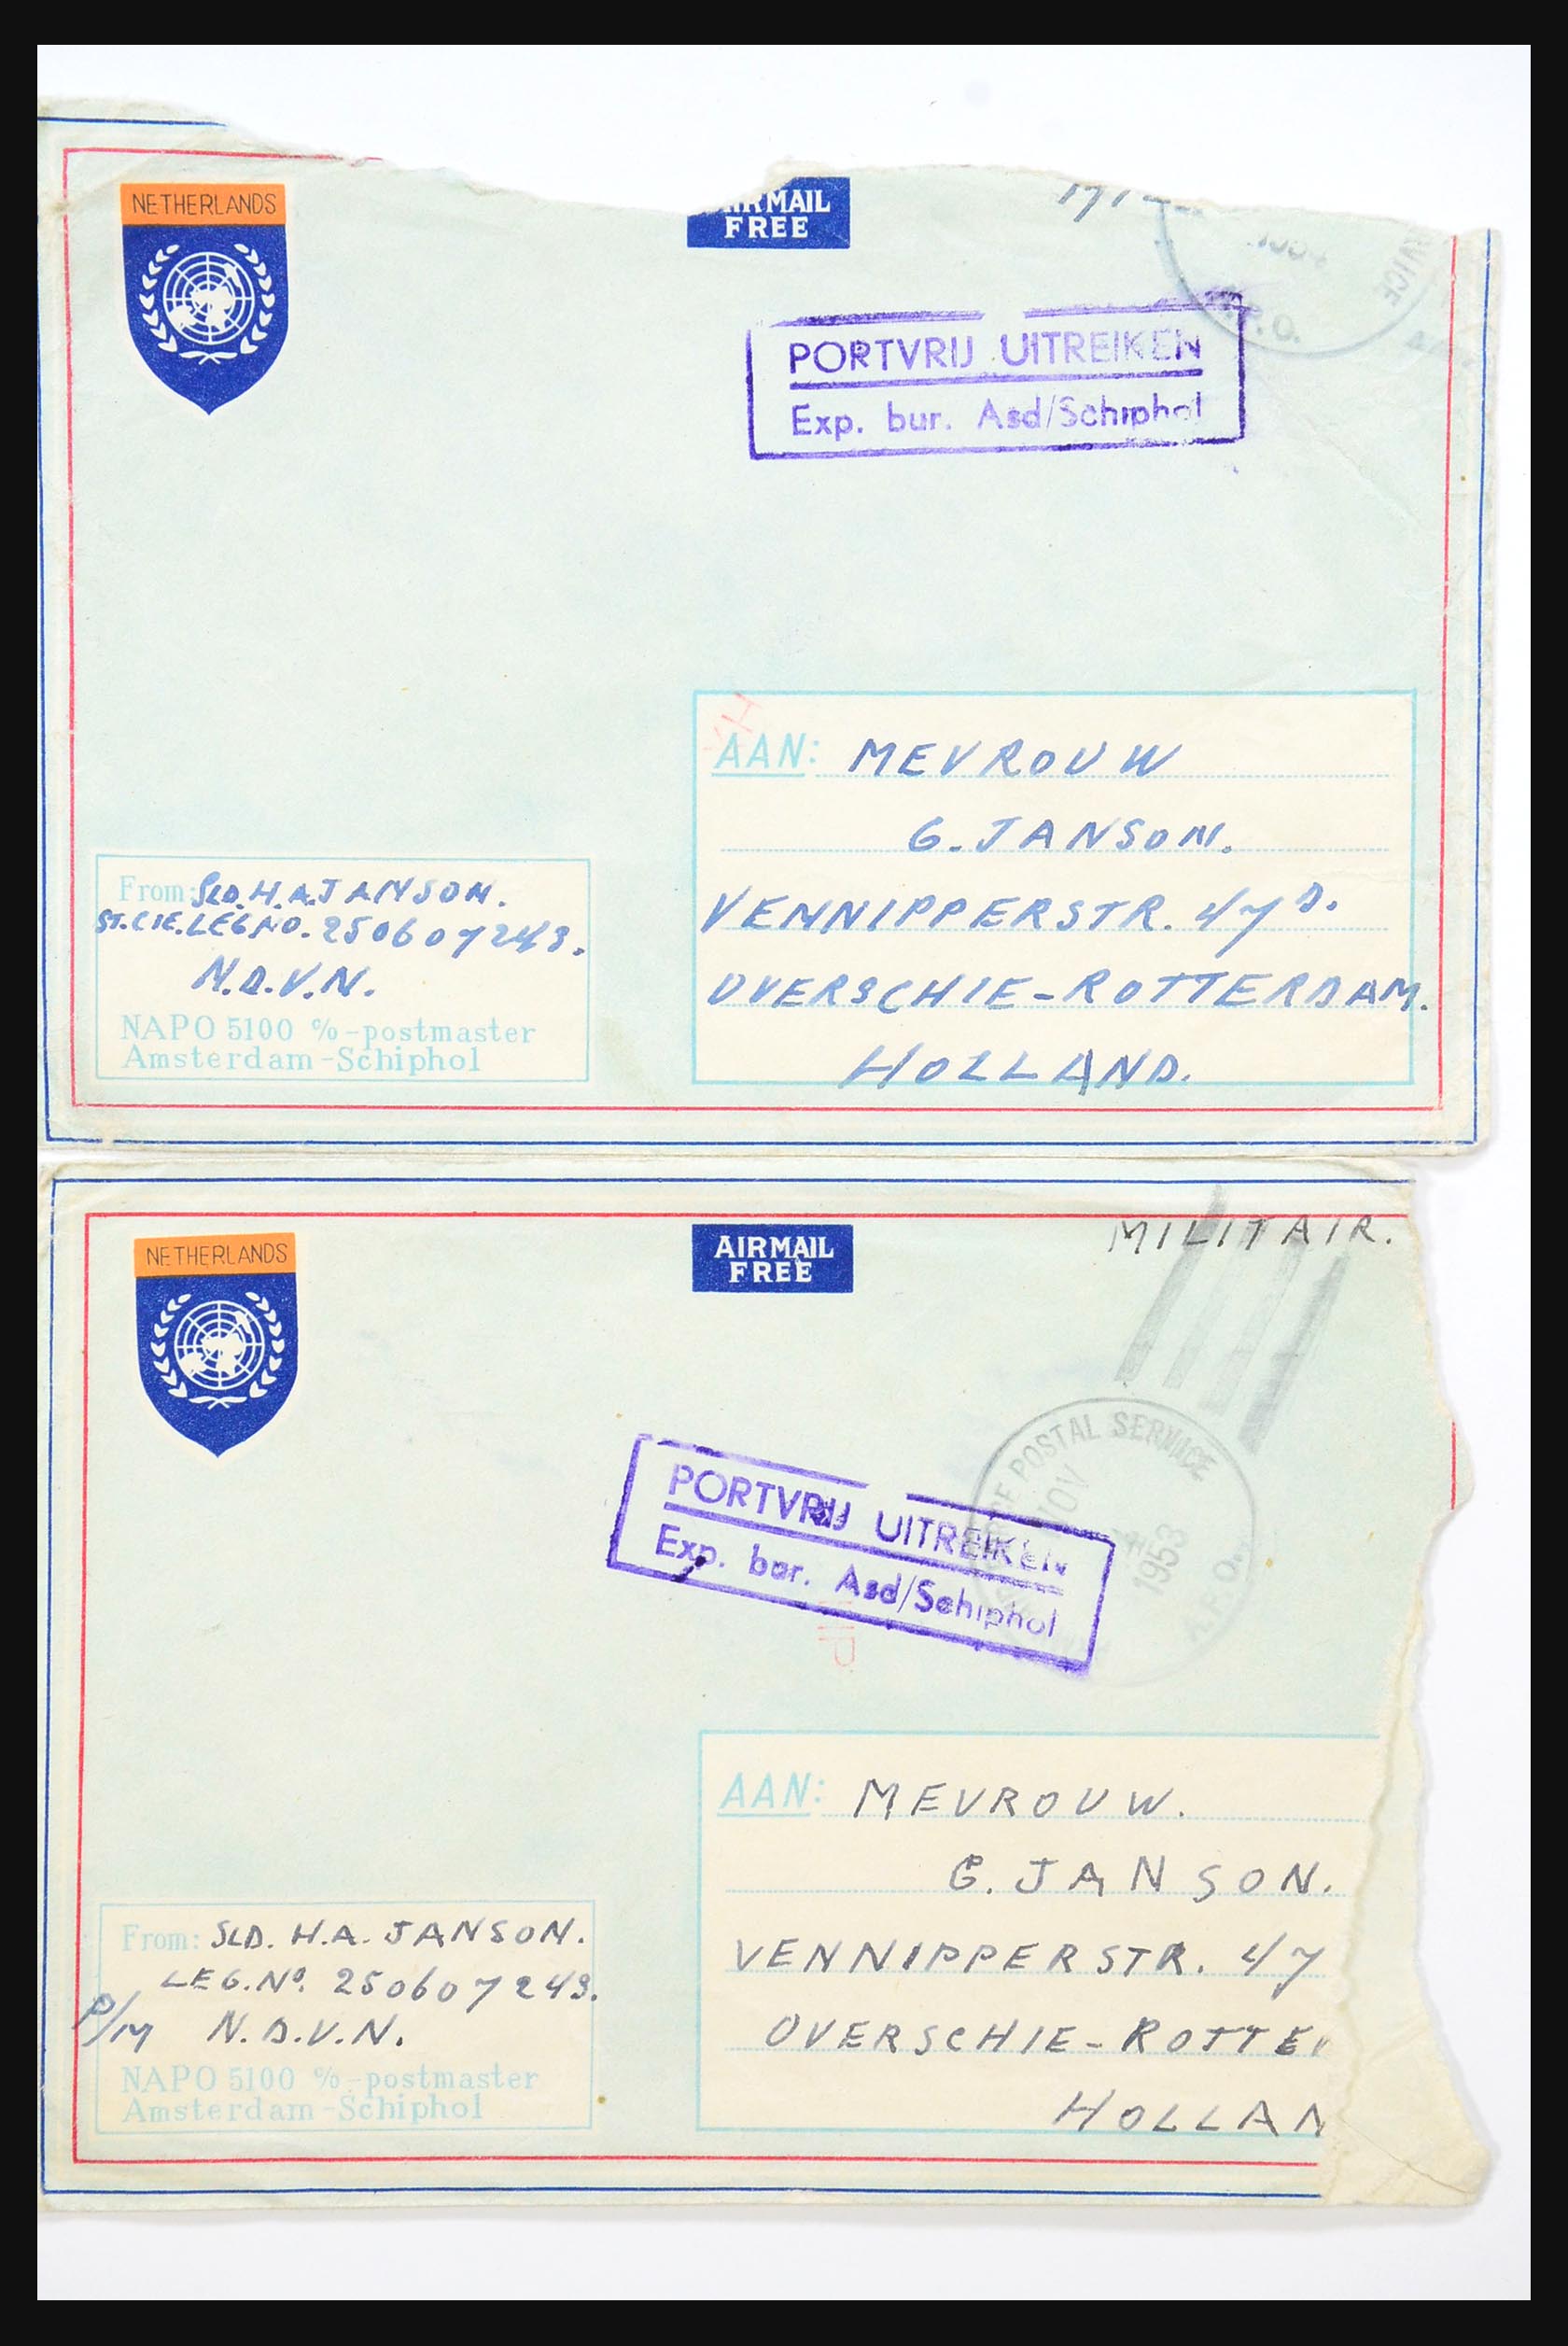 NETHERLANDS
AIRMAIL
FREE
A.P.O.
PORTVRIJ UITREIKEN
Exp. bur. Asd/Schiphol
AAN: MEVROUW
G. JANSON.
VENNIPPERSTR. 47D.
OVERSCHIE-ROTTERDAM.
HOLLAND.
From: SLD. H.A. JANSON.
ST. CIE. LEG NO. 250607243.
N.D.V.N.
NAPO 5100 %-postmaster
Amsterdam-Schiphol
NETHERLANDS
AIRMAIL
FREE
MILITAIR.
POSTAL SERVICE
NOV
4
1953
A.P.O.
PORTVRIJ UITREIKEN
Exp. bur. Asd/Schiphol
AAN: MEVROUW.
G. JANSON.
VENNIPPERSTR. 47
OVERSCHIE-ROTTE
HOLLAN
From: SLD. H.A. JANSON.
LEG. No. 250607243.
P/M N.D.V.N.
NAPO 5100 %-postmaster
Amsterdam-Schiphol